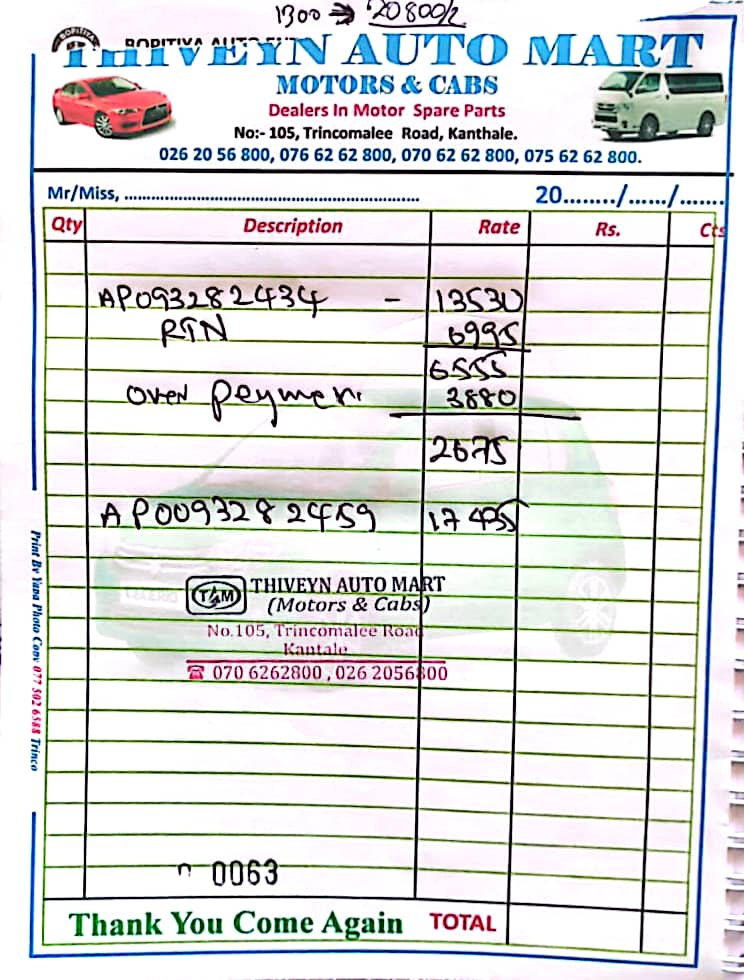 1300 → 20800/2
BOPITIYA
BOPITIYA AUTO
THIVEYN AUTO MART
MOTORS & CABS
Dealers In Motor Spare Parts
No:- 105, Trincomalee Road, Kanthale.
026 20 56 800, 076 62 62 800, 070 62 62 800, 075 62 62 800.
Mr/Miss, ............................................................ 20......../....../.......
Qty Description Rate Rs. Cts
AP093282434 - 13530
RTN 6995
6555
over peymen 3880
2675
AP0093282459 17455
TAM THIVEYN AUTO MART
(Motors & Cabs)
No.105, Trincomalee Road
Kantale
☎ 070 6262800 , 026 2056800
Print By Yana Photo Copy 077 502 6588 Trinco
0063
Thank You Come Again TOTAL